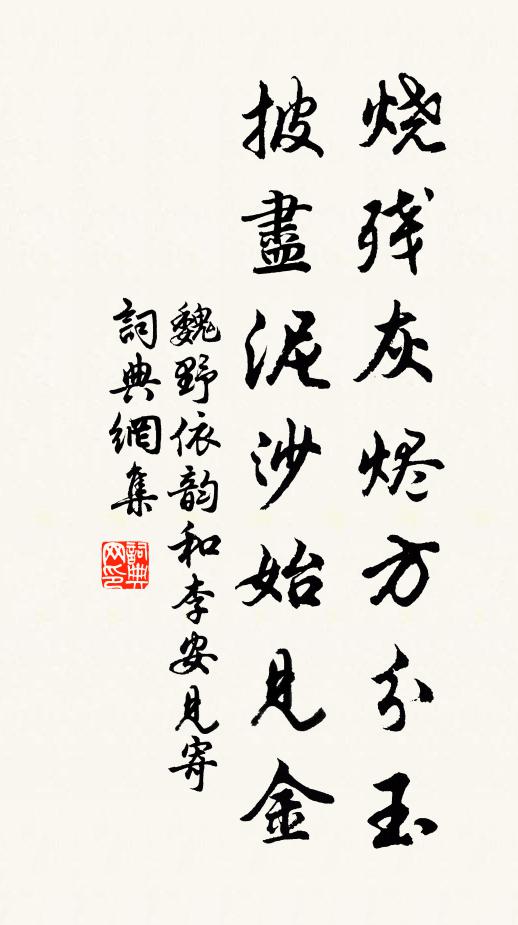 烧残灰烬方分玉
披盡泥沙始见金
魏野依韵和李安见寄
詞典網集
詞典网印